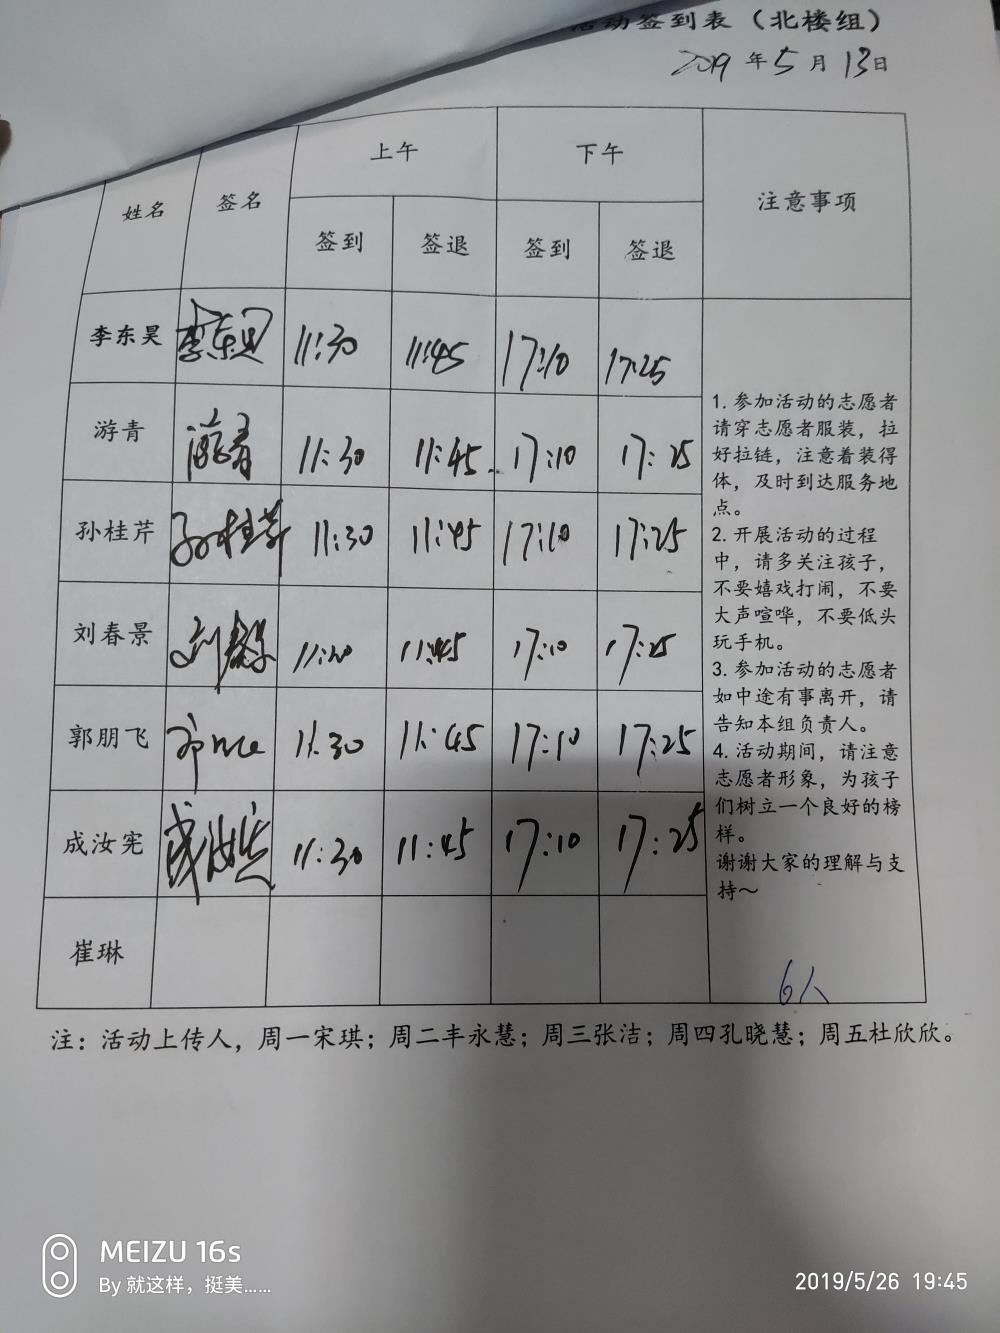 活动签到表（北楼组）
2019年5月13日
姓名 签名 上午 下午 注意事项
签到 签退 签到 签退
李东昊 李东昊 11:30 11:45 17:10 17:25
游青 游青 11:30 11:45 17:10 17:25
孙桂芹 孙桂芹 11:30 11:45 17:10 17:25
刘春景 刘春景 11:30 11:45 17:10 17:25
郭朋飞 11:30 11:45 17:10 17:25
成汝宪 成汝宪 11:30 11:45 17:10 17:25
崔琳
1. 参加活动的志愿者
请穿志愿者服装，拉
好拉链，注意着装得
体，及时到达服务地
点。
2. 开展活动的过程
中，请多关注孩子，
不要嬉戏打闹，不要
大声喧哗，不要低头
玩手机。
3. 参加活动的志愿者
如中途有事离开，请
告知本组负责人。
4. 活动期间，请注意
志愿者形象，为孩子
们树立一个良好的榜
样。
谢谢大家的理解与支
持～
6人
注：活动上传人，周一宋琪；周二丰永慧；周三张洁；周四孔晓慧；周五杜欣欣。
MEIZU 16s
By 就这样，挺美......
2019/5/26 19:45